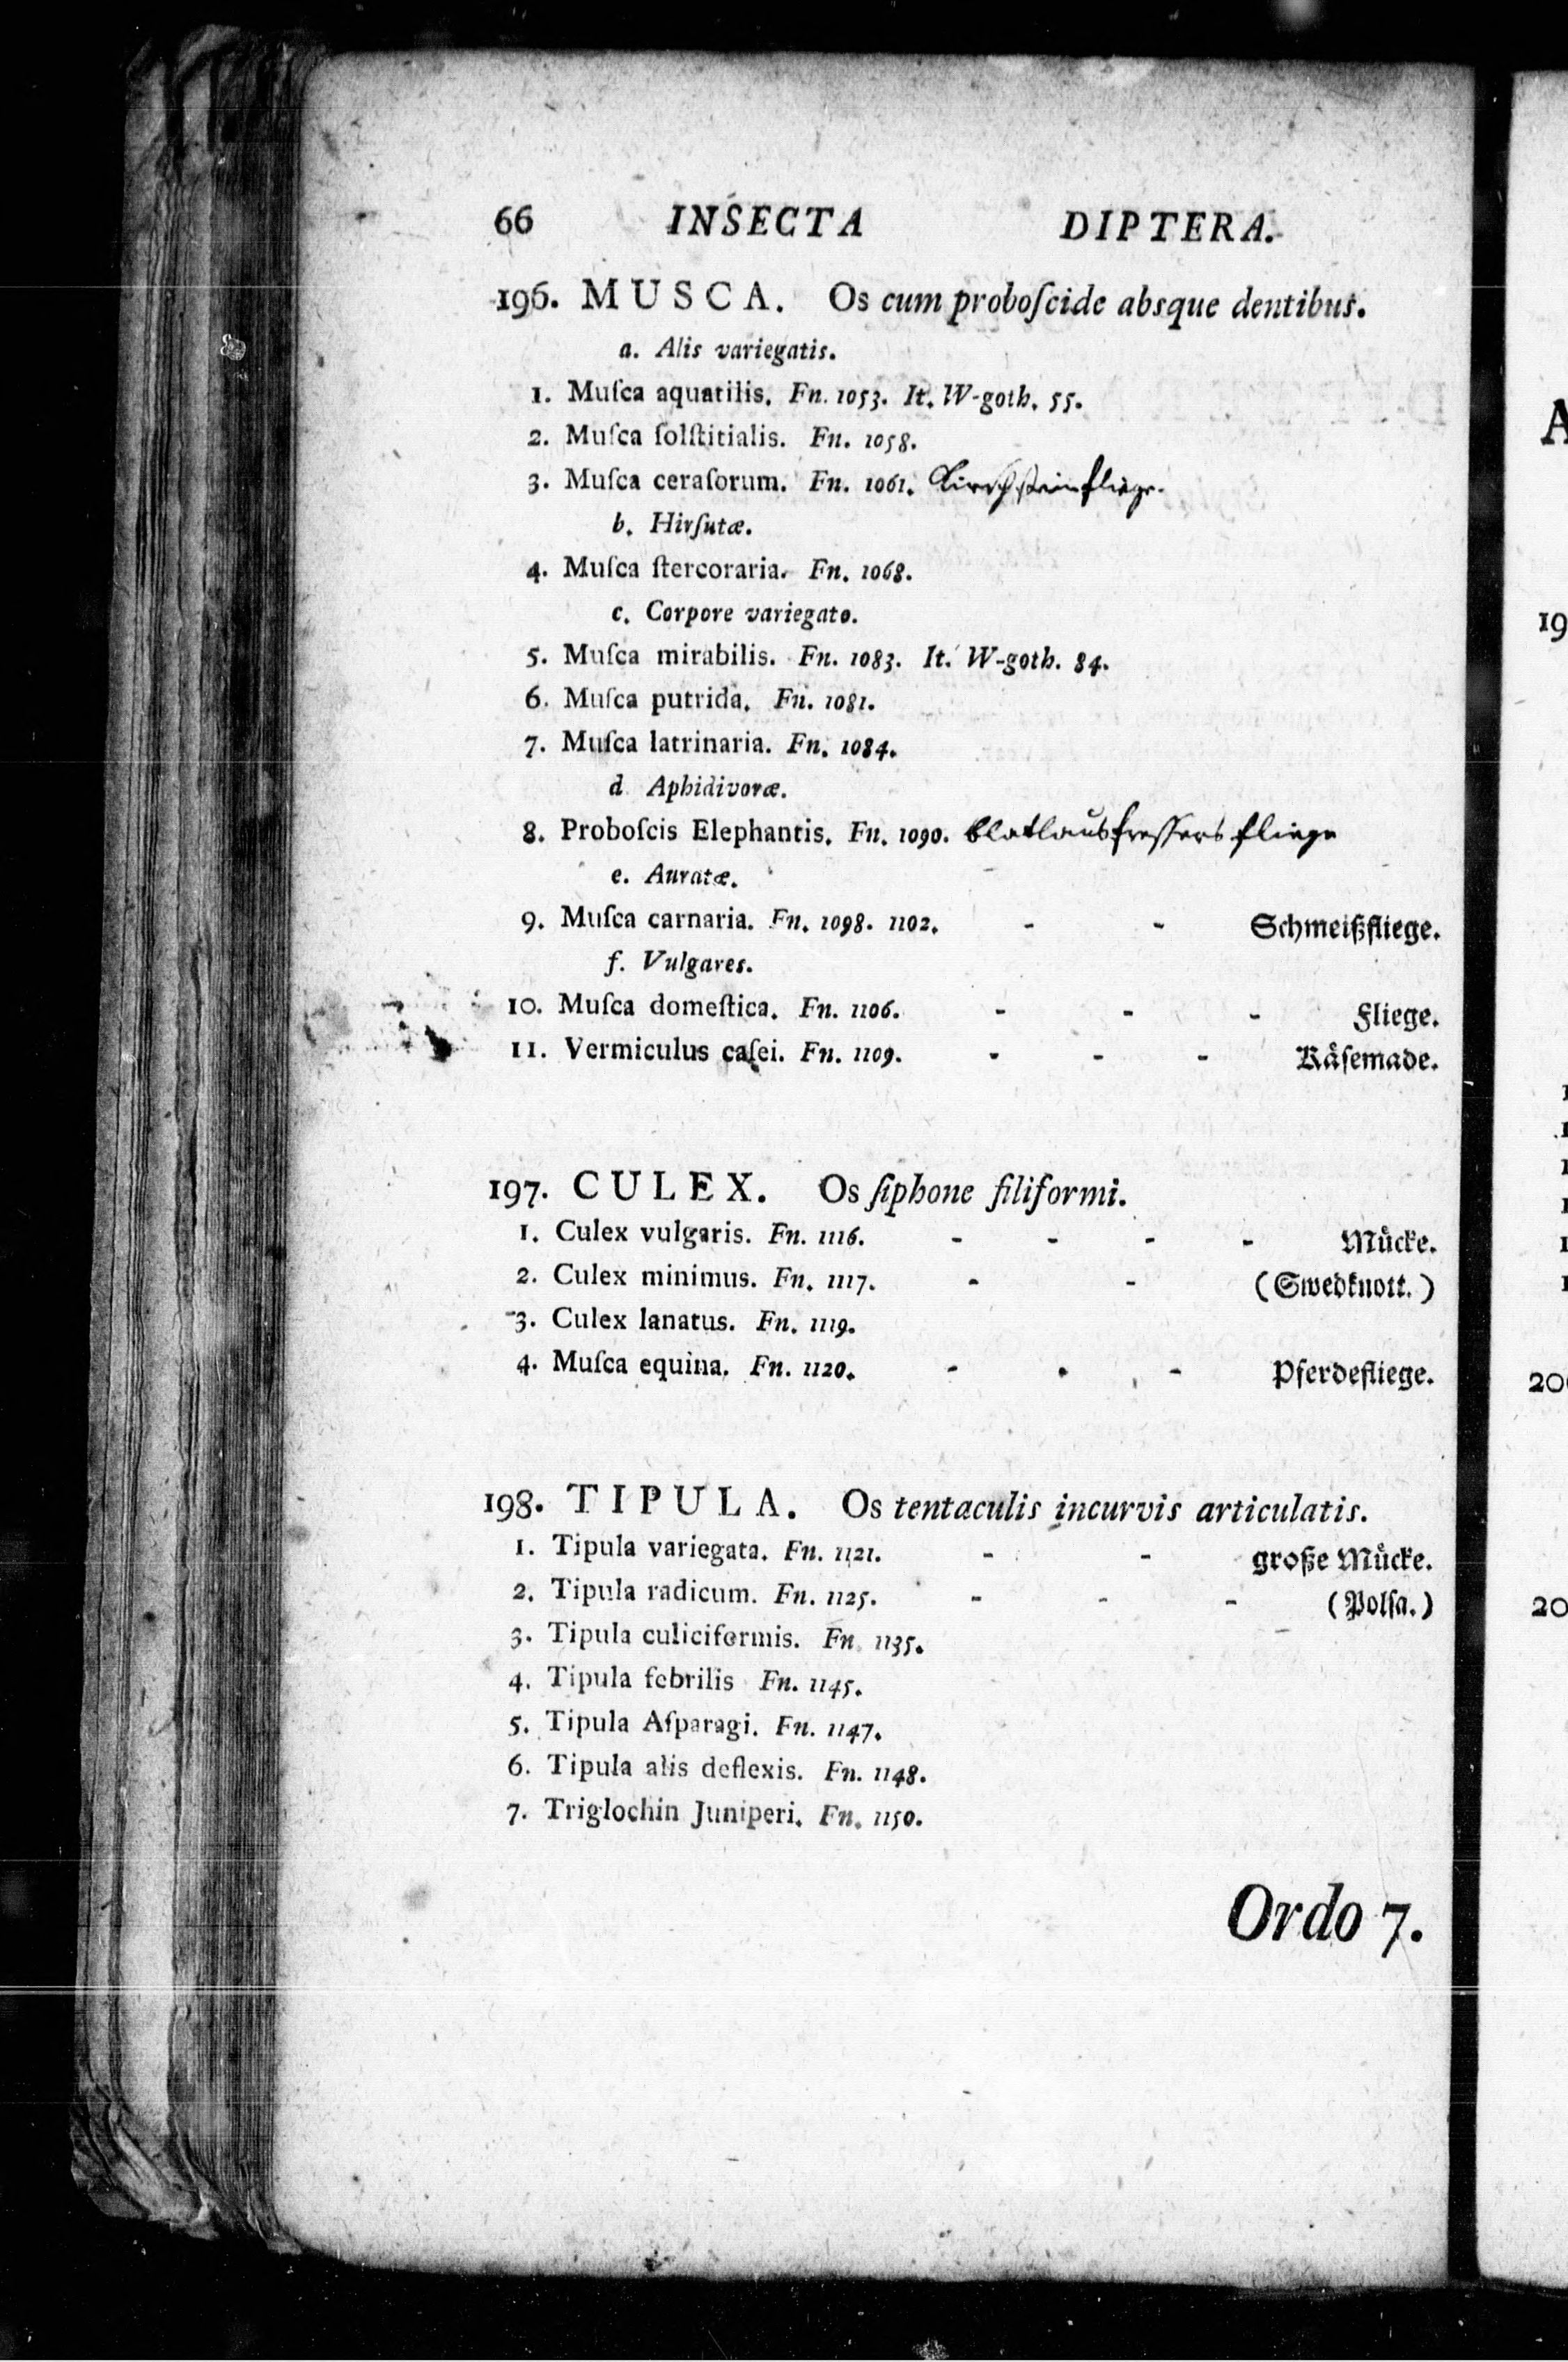 66 INSECTA DIPTERA.
196. MUSCA. Os cum proboſcide absque dentibus.
a. Alis variegatis.
1. Muſca aquatilis. Fn. 1053. It. W-goth. 55.
2. Muſca ſolſtitialis. Fn. 1058.
3. Muſca ceraſorum. Fn. 1061. Kirschsteinfliege.
b. Hirſutæ.
4. Muſca ſtercoraria. Fn. 1068.
c. Corpore variegato.
5. Muſca mirabilis. Fn. 1083. It. W-goth. 84.
6. Muſca putrida. Fn. 1081.
7. Muſca latrinaria. Fn. 1084.
d Aphidivoræ.
8. Proboſcis Elephantis. Fn. 1090. blatlausfressers fliege
e. Auratæ.
9. Muſca carnaria. Fn. 1098. 1102. - - Schmeißfliege.
f. Vulgares.
10. Muſca domeſtica. Fn. 1106. - - - Fliege.
11. Vermiculus caſei. Fn. 1109. - - - Kåſemade.
197. CULEX. Os ſiphone filiformi.
1. Culex vulgaris. Fn. 1116. - - - - Můcke.
2. Culex minimus. Fn. 1117. - - (Swedknott.)
3. Culex lanatus. Fn. 1119.
4. Muſca equina. Fn. 1120. - - - Pferdefliege.
198. TIPULA. Os tentaculis incurvis articulatis.
1. Tipula variegata. Fn. 1121. - - große Můcke.
2. Tipula radicum. Fn. 1125. - - - (Polſa.)
3. Tipula culiciformis. Fn. 1135.
4. Tipula febrilis Fn. 1145.
5. Tipula Aſparagi. Fn. 1147.
6. Tipula alis deflexis. Fn. 1148.
7. Triglochin Juniperi. Fn. 1150.
Ordo 7.
A
19
200
20